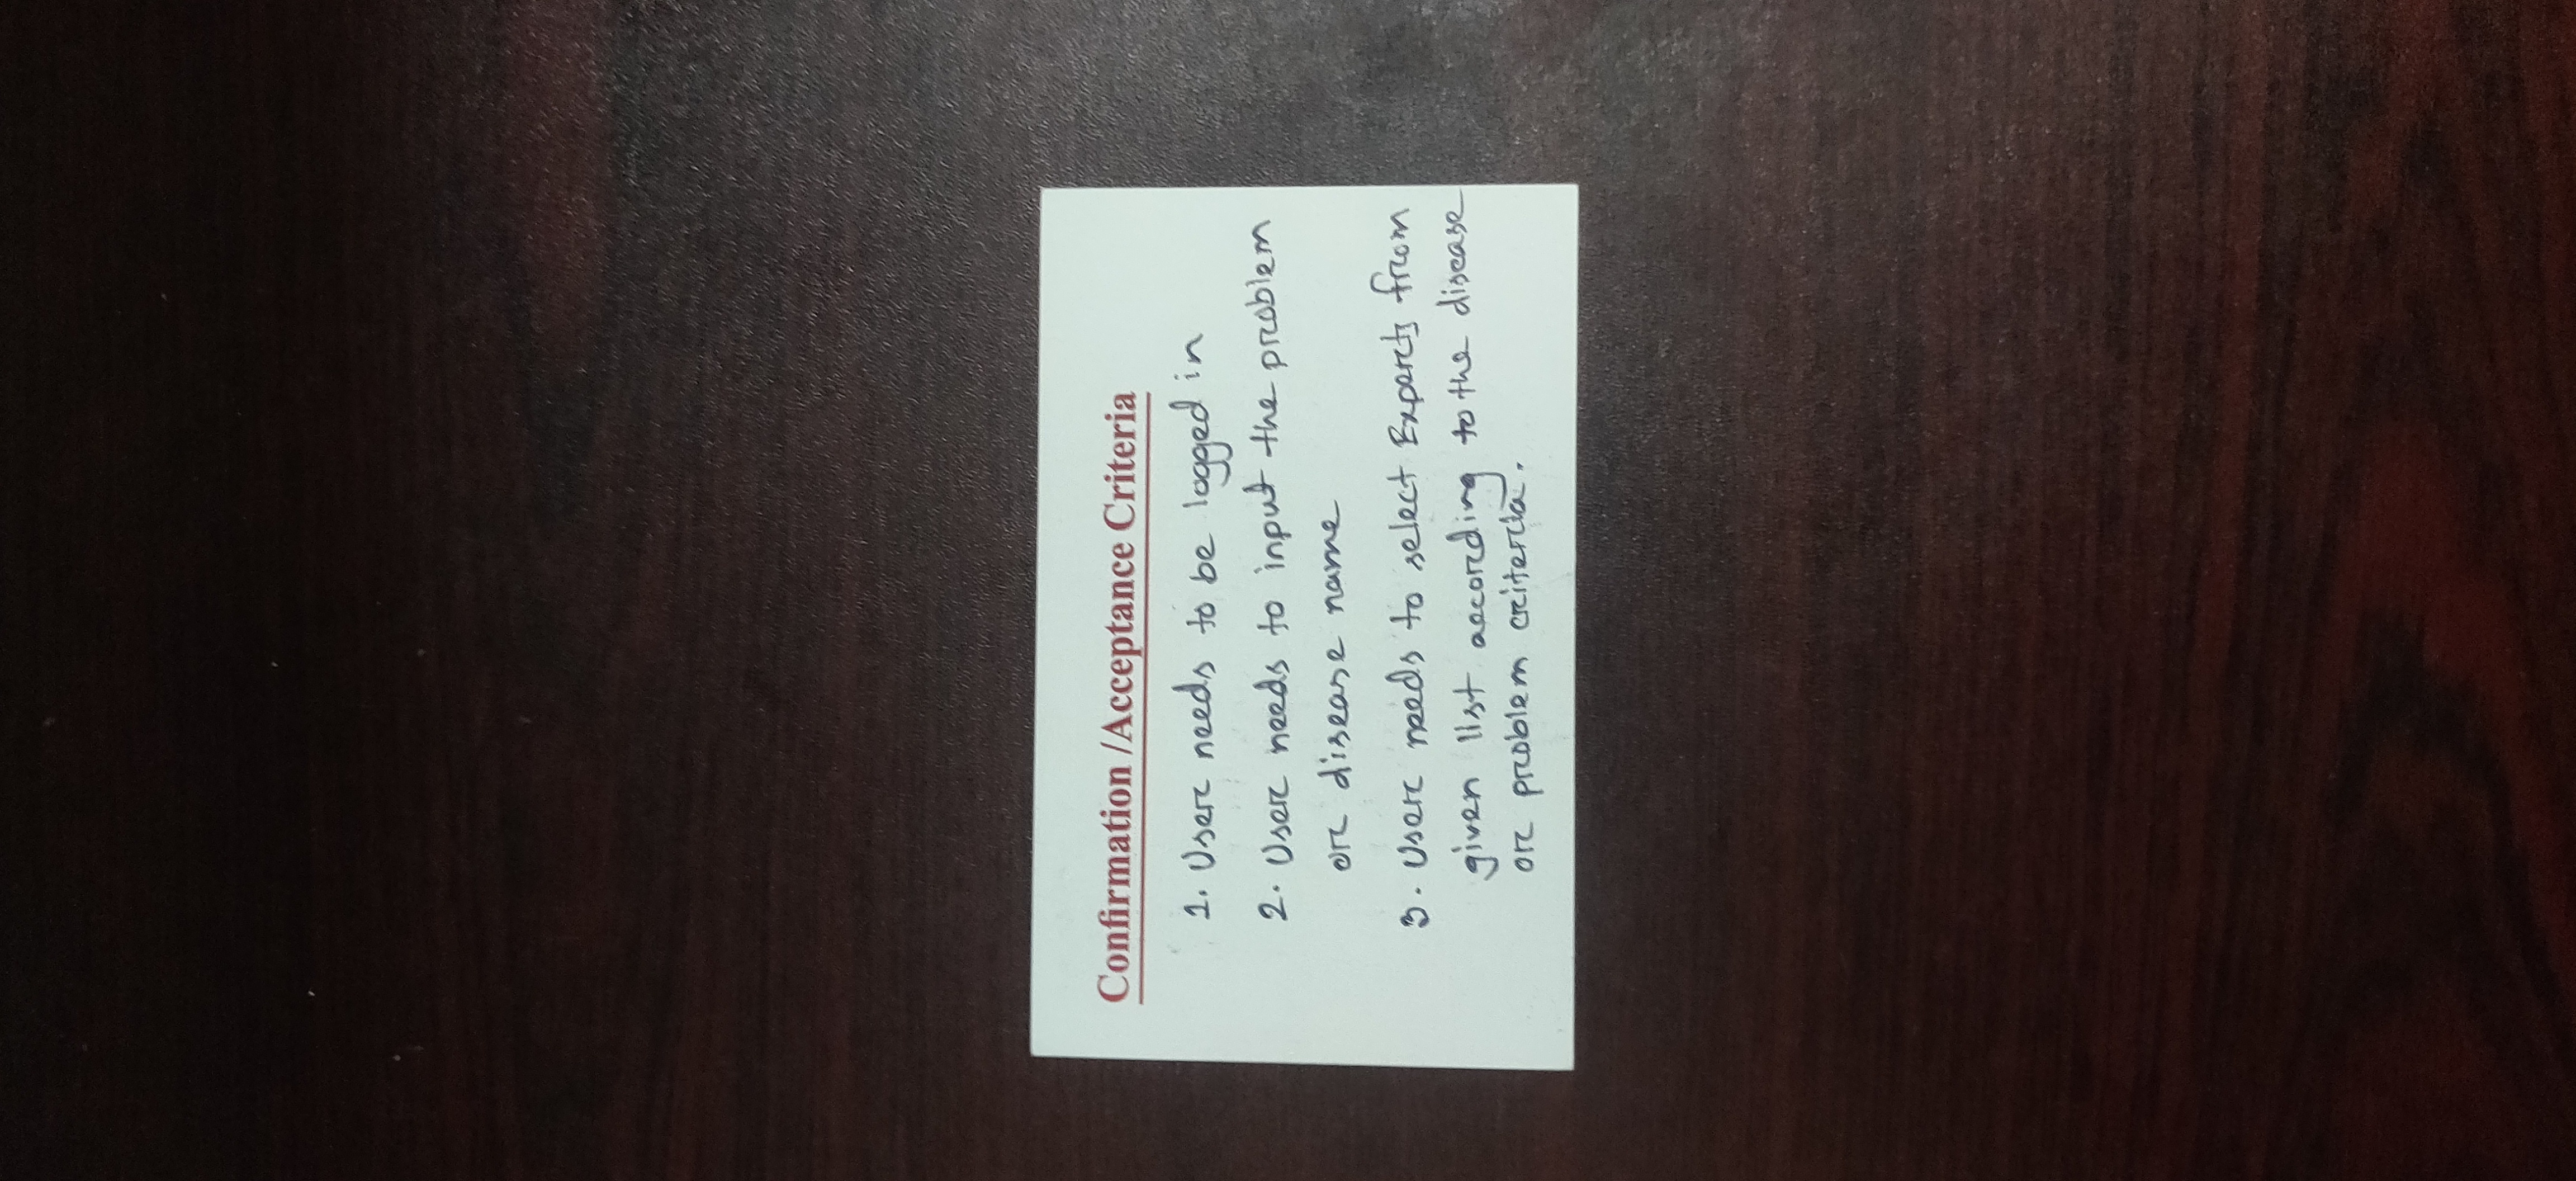 Confirmation /Acceptance Criteria
1. User needs to be logged in
2. User needs to input the problem
or disease name
3. User needs to select Experts from
given list according to the disease
or problem criteria.